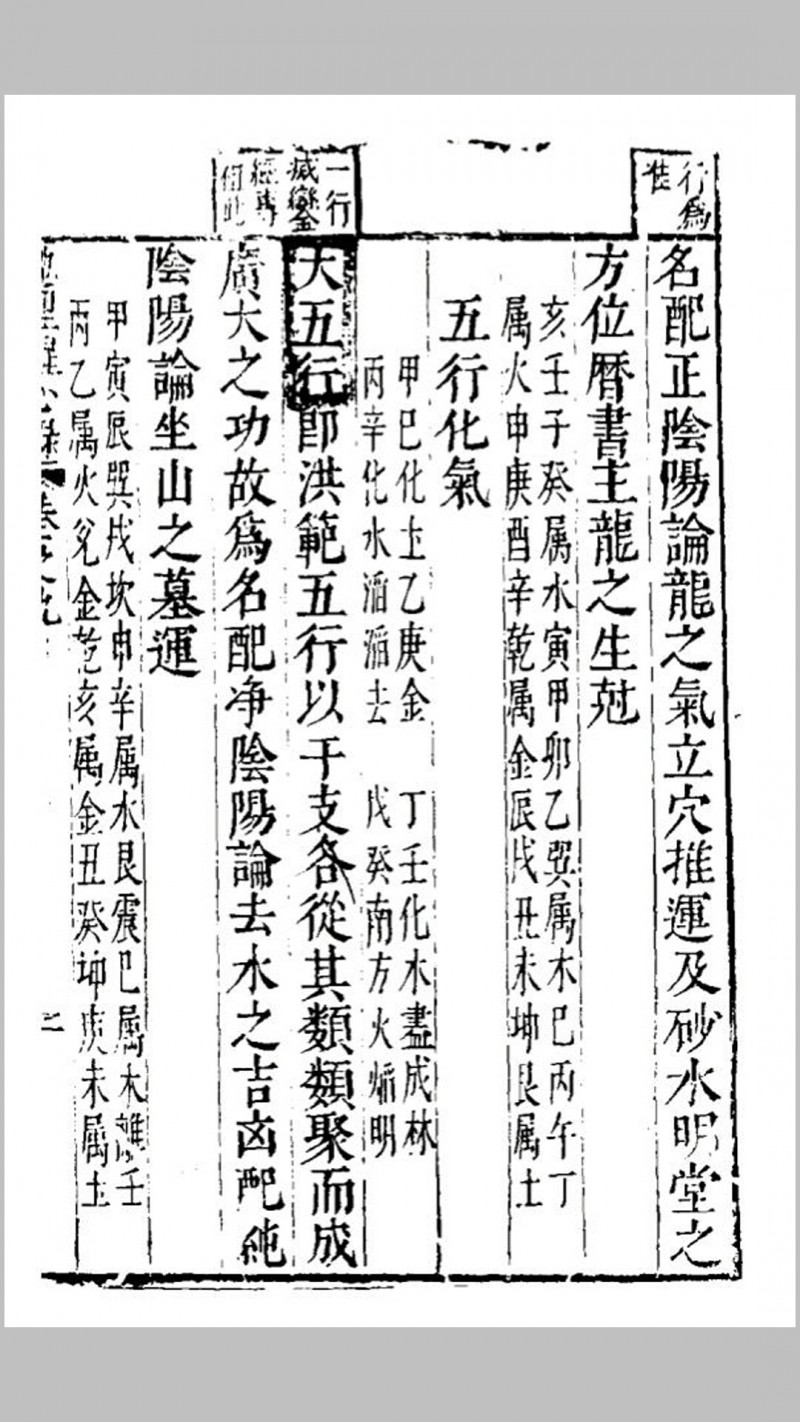 行爲
準
名配正陰陽論龍之氣立穴推運及砂水明堂之
方位曆書主龍之生尅
亥壬子癸属水寅甲卯乙巽属木巳丙午丁
属火申庚酉辛乾属金辰戌丑未坤艮属土
五行化氣
甲巳化土乙庚金　丁壬化木盡成林
丙辛化水滔滔去　戊癸南方火焰明
一行
大五行即洪範五行以干支各從其類類聚而成
廣大之功故爲名配净陰陽論去水之吉凶配純
陰陽論坐山之墓運
甲寅辰巽戌坎申辛属水艮震巳属木離壬
丙乙属火兌金乾亥属金丑癸坤庚未属土